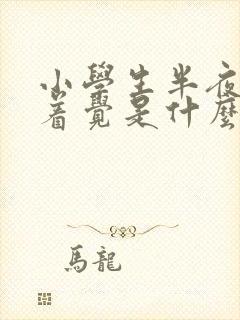 小學生半夜
着覺是什麼
馬龍